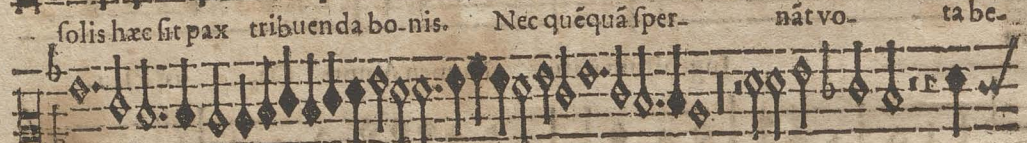 ſolis hæc ſit pax tribuenda bo-nis. Nec quẽquã ſper- nãt vo- ta be-